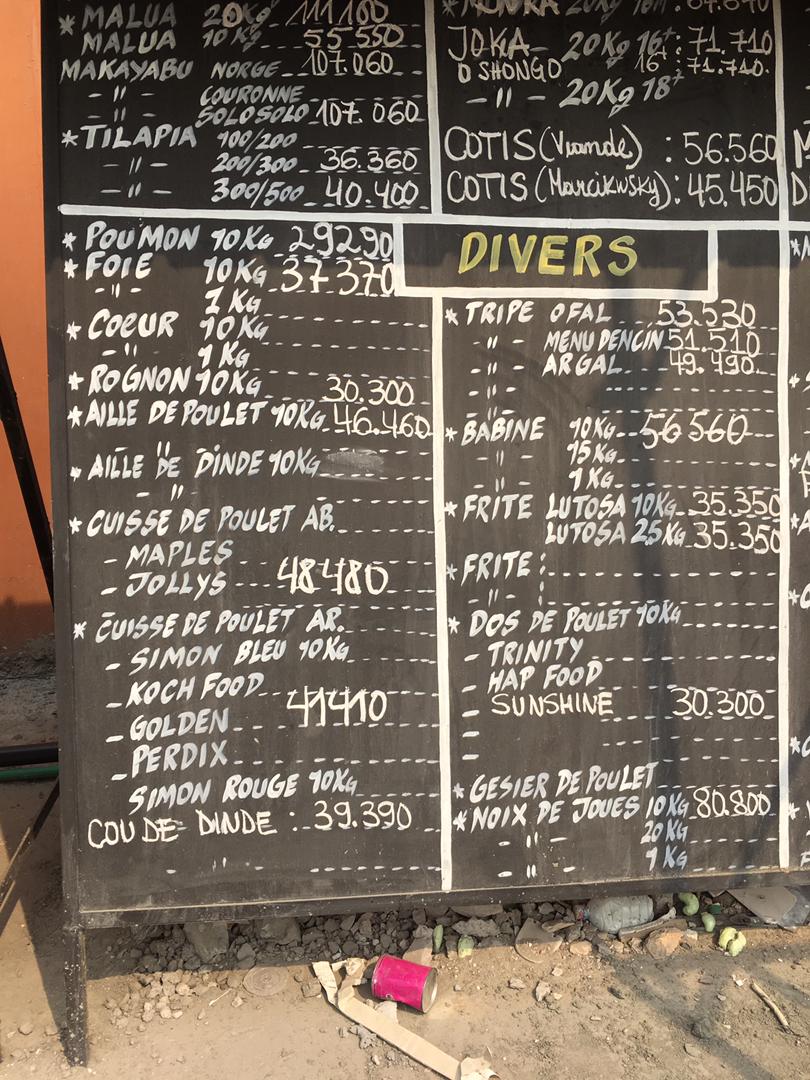 * MALUA 20Kg 111100
MALUA 10Kg 55550
MAKAYABU NORGE 107.060
- " - COURONNE
SOLOSOLO 107.060
* TILAPIA 100/200
- " - 200/300 36.360
- " - 300/500 40.400
JOKA 20Kg 16+: 71.710
O SHONGO 16+: 71.710.
- " - 20Kg 18+
COTIS (Viande) : 56.560
COTIS (Marcikwsky) : 45.450
* POUMON 10KG 29290
* FOIE 10KG 37370
- " - 1KG
* COEUR 10KG
- " - 1KG
* ROGNON 10KG 30.300
* AILLE DE POULET 10KG 46.460
"
* AILLE DE DINDE 10KG
- "
* CUISSE DE POULET AB.
- MAPLES
- JOLLYS 48480
* CUISSE DE POULET AR.
- SIMON BLEU 10KG
- KOCH FOOD
- GOLDEN 41410
- PERDIX
SIMON ROUGE 10KG
COU DE DINDE : 39.390
"
DIVERS
* TRIPE OFAL 53.530
- " - MENU DENCIN 51.510
- " - ARGAL 49.490
- " -
- " -
* BABINE 10KG 56560
- " - 15KG
- " - 1KG
* FRITE LUTOSA 10KG 35.350
LUTOSA 2.5KG 35.350
* FRITE :
- " - :
* DOS DE POULET 10KG
- TRINITY
- HAP FOOD
- SUNSHINE 30.300
-
-
* GESIER DE POULET
* NOIX DE JOUES 10KG 80.800
- " - 20KG
- " - 1KG